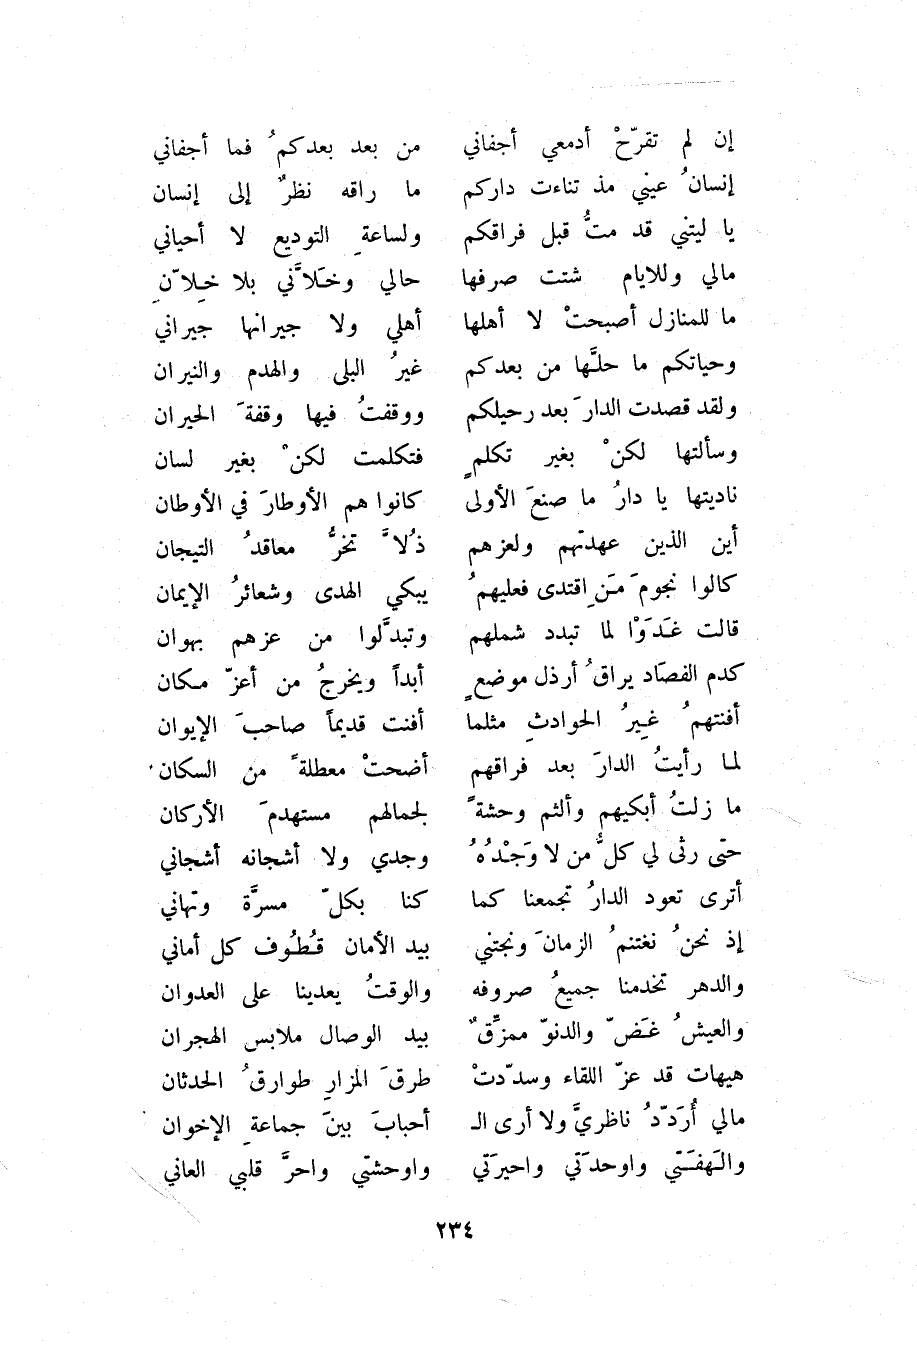 إن لم تقرّحْ أدمعي أجفاني من بعد بعدكمُ فما أجفاني
إنسانُ عيني مذ تناءت داركم ما راقه نظرٌ إلى إنسان
يا ليتني قد متُّ قبل فراقكم ولساعةِ التوديع لا أحياني
مالي وللايام شتت صرفها حالي وخلاَّني بلا خِلاّنِ
ما للمنازل أصبحتْ لا أهلها أهلي ولا جيرانها جيراني
وحياتكم ما حلَّها من بعدكم غيرُ البلى والهدم والنيران
ولقد قصدت الدارَ بعد رحيلكم ووقفتُ فيها وقفةَ الحيران
وسألتها لكنْ بغير تكلمٍ فتكلمت لكنْ بغير لسان
ناديتها يا دارُ ما صنعَ الأولى كانوا هم الأوطارَ في الأوطان
أين الذين عهدتهم ولعزهم ذُلاًّ تخرُّ معاقدُ التيجان
كالوا نجومَ مَنِ اقتدى فعليهمُ يبكي الهدى وشعائرُ الإيمان
قالت غَدَوْا لما تبدد شملهم وتبدَّلوا من عزهم بهوان
كدم الفصّاد يراقُ أرذل موضعٍ أبداً ويخرجُ من أعزّ مكان
أفنتهمُ غِيرُ الحوادثِ مثلما أفنت قديماً صاحبَ الإيوان
لما رأيتُ الدارَ بعد فراقهم أضحتْ معطلةً من السكان
ما زلتُ أبكيهم وألثم وحشةً لجمالهم مستهدمَ الأركان
حتى رثى لي كلُّ من لا وَجْدُهُ وجدي ولا أشجانه أشجاني
أترى تعود الدارُ تجمعنا كما كنا بكلّ مسرَّة وتهاني
إذ نحنُ نغتنمُ الزمانَ ونجتني بيد الأمان قُطُوف كل أماني
والدهر تخدمنا جميعُ صروفه والوقتُ يعدينا على العدوان
والعيشُ غَضّ والدنوّ ممزَّقٌ بيد الوصال ملابس الهجران
هيهات قد عزّ اللقاء وسدّدتْ طرقَ المزارِ طوارقُ الحدثان
مالي أُرَدّدُ ناظريَّ ولا أرى الـ أحبابَ بينَ جماعةِ الإخوان
والَهفَتي واوحدَتي واحيرَتي واوحشتي واحرَّ قلبي العاني
٢٣٤